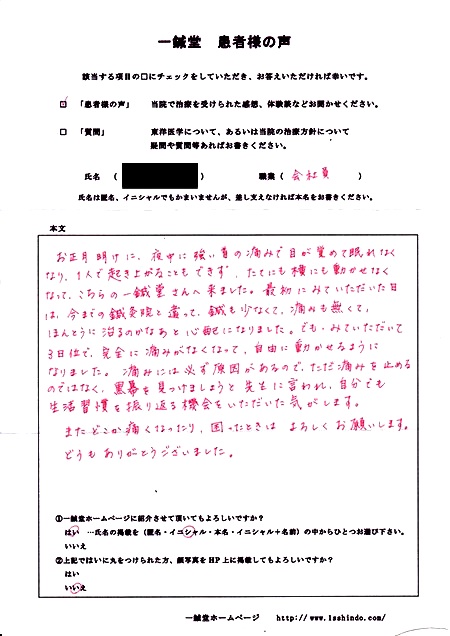 一鍼堂 患者様の声
該当する項目の□にチェックをしていただき、お答えいただければ幸いです。
☑ 「患者様の声」 当院で治療を受けられた感想、体験談などお聞かせください。
□ 「質問」 東洋医学について、あるいは当院の治療方針について
疑問や質問等あればお書きください。
氏名 ( ) 職業 ( 会社員 )
氏名は匿名、イニシャルでもかまいませんが、差し支えなければ本名をお書きください。
本文
お正月明けに、夜中に強い首の痛みで目が覚めて眠れなく
なり、1人で起き上がることもできず、たてにも横にも動かせなく
なって、こちらの一鍼堂さんへ来ました。最初にみていただいた日
は、今までの鍼灸院と違って、鍼も少なくて、痛みも無くて、
ほんとうに治るのかなあと心配になりました。でも、みていただいて
3日位で、完全に痛みがなくなって、自由に動かせるように
なりました。痛みには必ず原因があるので、ただ痛みを止める
のではなく、黒幕を見つけましょうと先生に言われ、自分でも
生活習慣を振り返る機会をいただいた気がします。
またどこか痛くなったり、困ったときは よろしくお願いします。
どうもありがとうございました。
①一鍼堂ホームページに紹介させて頂いてもよろしいですか?
はい …氏名の掲載を(匿名・イニシャル・本名・イニシャル+名前)の中からひとつお選び下さい。
いいえ
②上記ではいに丸をつけられた方、顔写真をHP上に掲載してもよろしいですか?
はい
いいえ
一鍼堂ホームページ http://www.1sshindo.com/